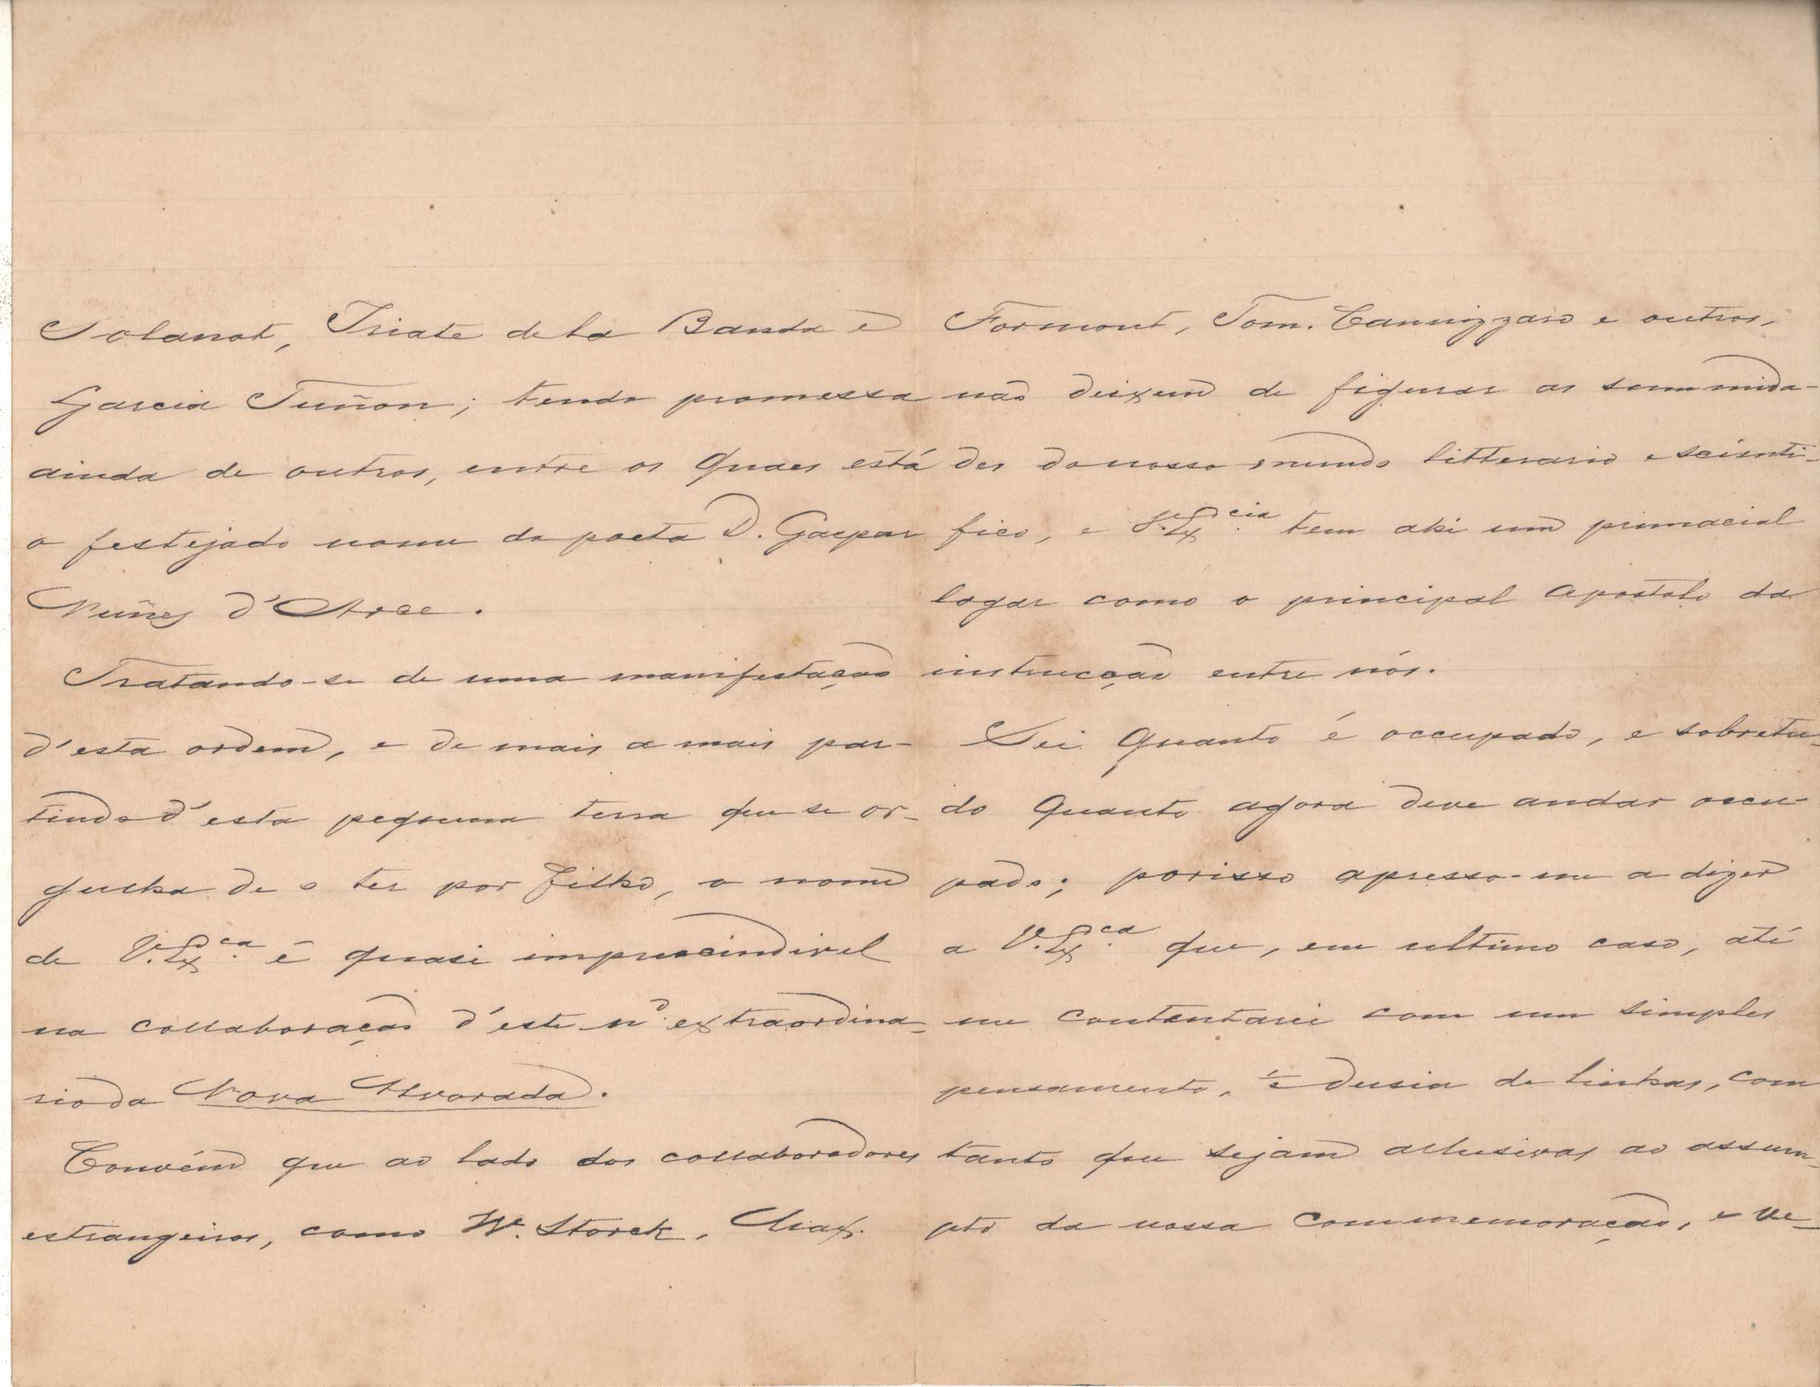 Solanot, Triate de la Banda e
Garcia Tuñon; tendo promessa
ainda de outros, entre os quaes está
o festejado nome do poeta D. Gaspar
Nuñes d'Arce.
Tratando-se de uma manifestação
d'esta ordem, e de mais a mais par-
tindo d'esta pequena terra que se or-
gulha de o ter por filho, o nome
de V. Ex.ca é quasi imprescindivel
na collaboração d'este nº extraordina-
rio da Nova Alvorada.
Convém que ao lado dos collaboradores
estrangeiros, como W. Storck,
Formont, Tom. Cannizzaro e outros,
não deixem de figurar as summida-
des do nosso mundo litterario e scienti-
fico, e V. Ex.cia tem ahi um primacial
logar como o principal apostolo da
instrucção entre nós.
Sei quanto é occupado, e sobretu-
do quanto agora deve andar occu-
pado; porisso apresso-me a dizer
a V. Ex.ca que, em ultimo caso, até
me contentarei com um simples
pensamento, ½ dusia de linhas, com
tanto que sejam allusivas ao assum-
pto da nossa commemoração, e ve-